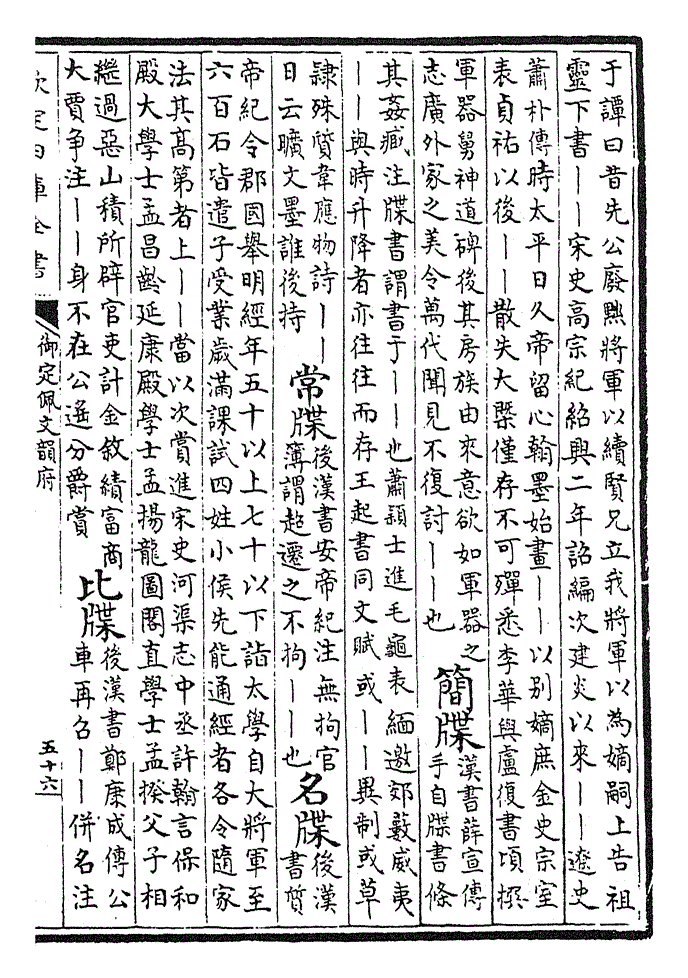 于譚曰昔先公廢黜將軍以續賢兄立我將軍以為嫡嗣上告祖
靈下書丨丨宋史高宗紀紹興二年詔編次建炎以來丨丨遼史
蕭朴傳時太平日久帝留心翰墨始畫丨丨以別嫡庶金史宗室
表貞祐以後丨丨散失大槩僅存不可殫悉李華與盧復書頃撰
軍器舅神道碑後其房族由來意欲如軍器之
志廣外家之美令萬代聞見不復討丨丨也
簡牒
漢書薛宣傳
手自牒書條
其姦臧注牒書謂書于丨丨也蕭穎士進毛龜表緬邀郊藪威夷
丨丨與時升降者亦往往而存王起書同文賦或丨丨異制或草
隸殊質韋應物詩丨丨
日云曠文墨誰後持
常牒
後漢書安帝紀注無拘官
簿謂超遷之不拘丨丨也
名牒
後漢
書質
帝紀令郡國舉明經年五十以上七十以下詣太學自大將軍至
六百石皆遣子受業歲滿課試四姓小侯先能通經者各令隨家
法其高第者上丨丨當以次賞進宋史河渠志中丞許翰言保和
殿大學士孟昌齡延康殿學士孟揚龍圖閣直學士孟揆父子相
繼過惡山積所辟官吏計金敘績富商
大賈爭注丨丨身不在公遙分爵賞
比牒
後漢書鄭康成傳公
車再召丨丨併名注
欽定四庫全書
御定佩文韻府
五十六